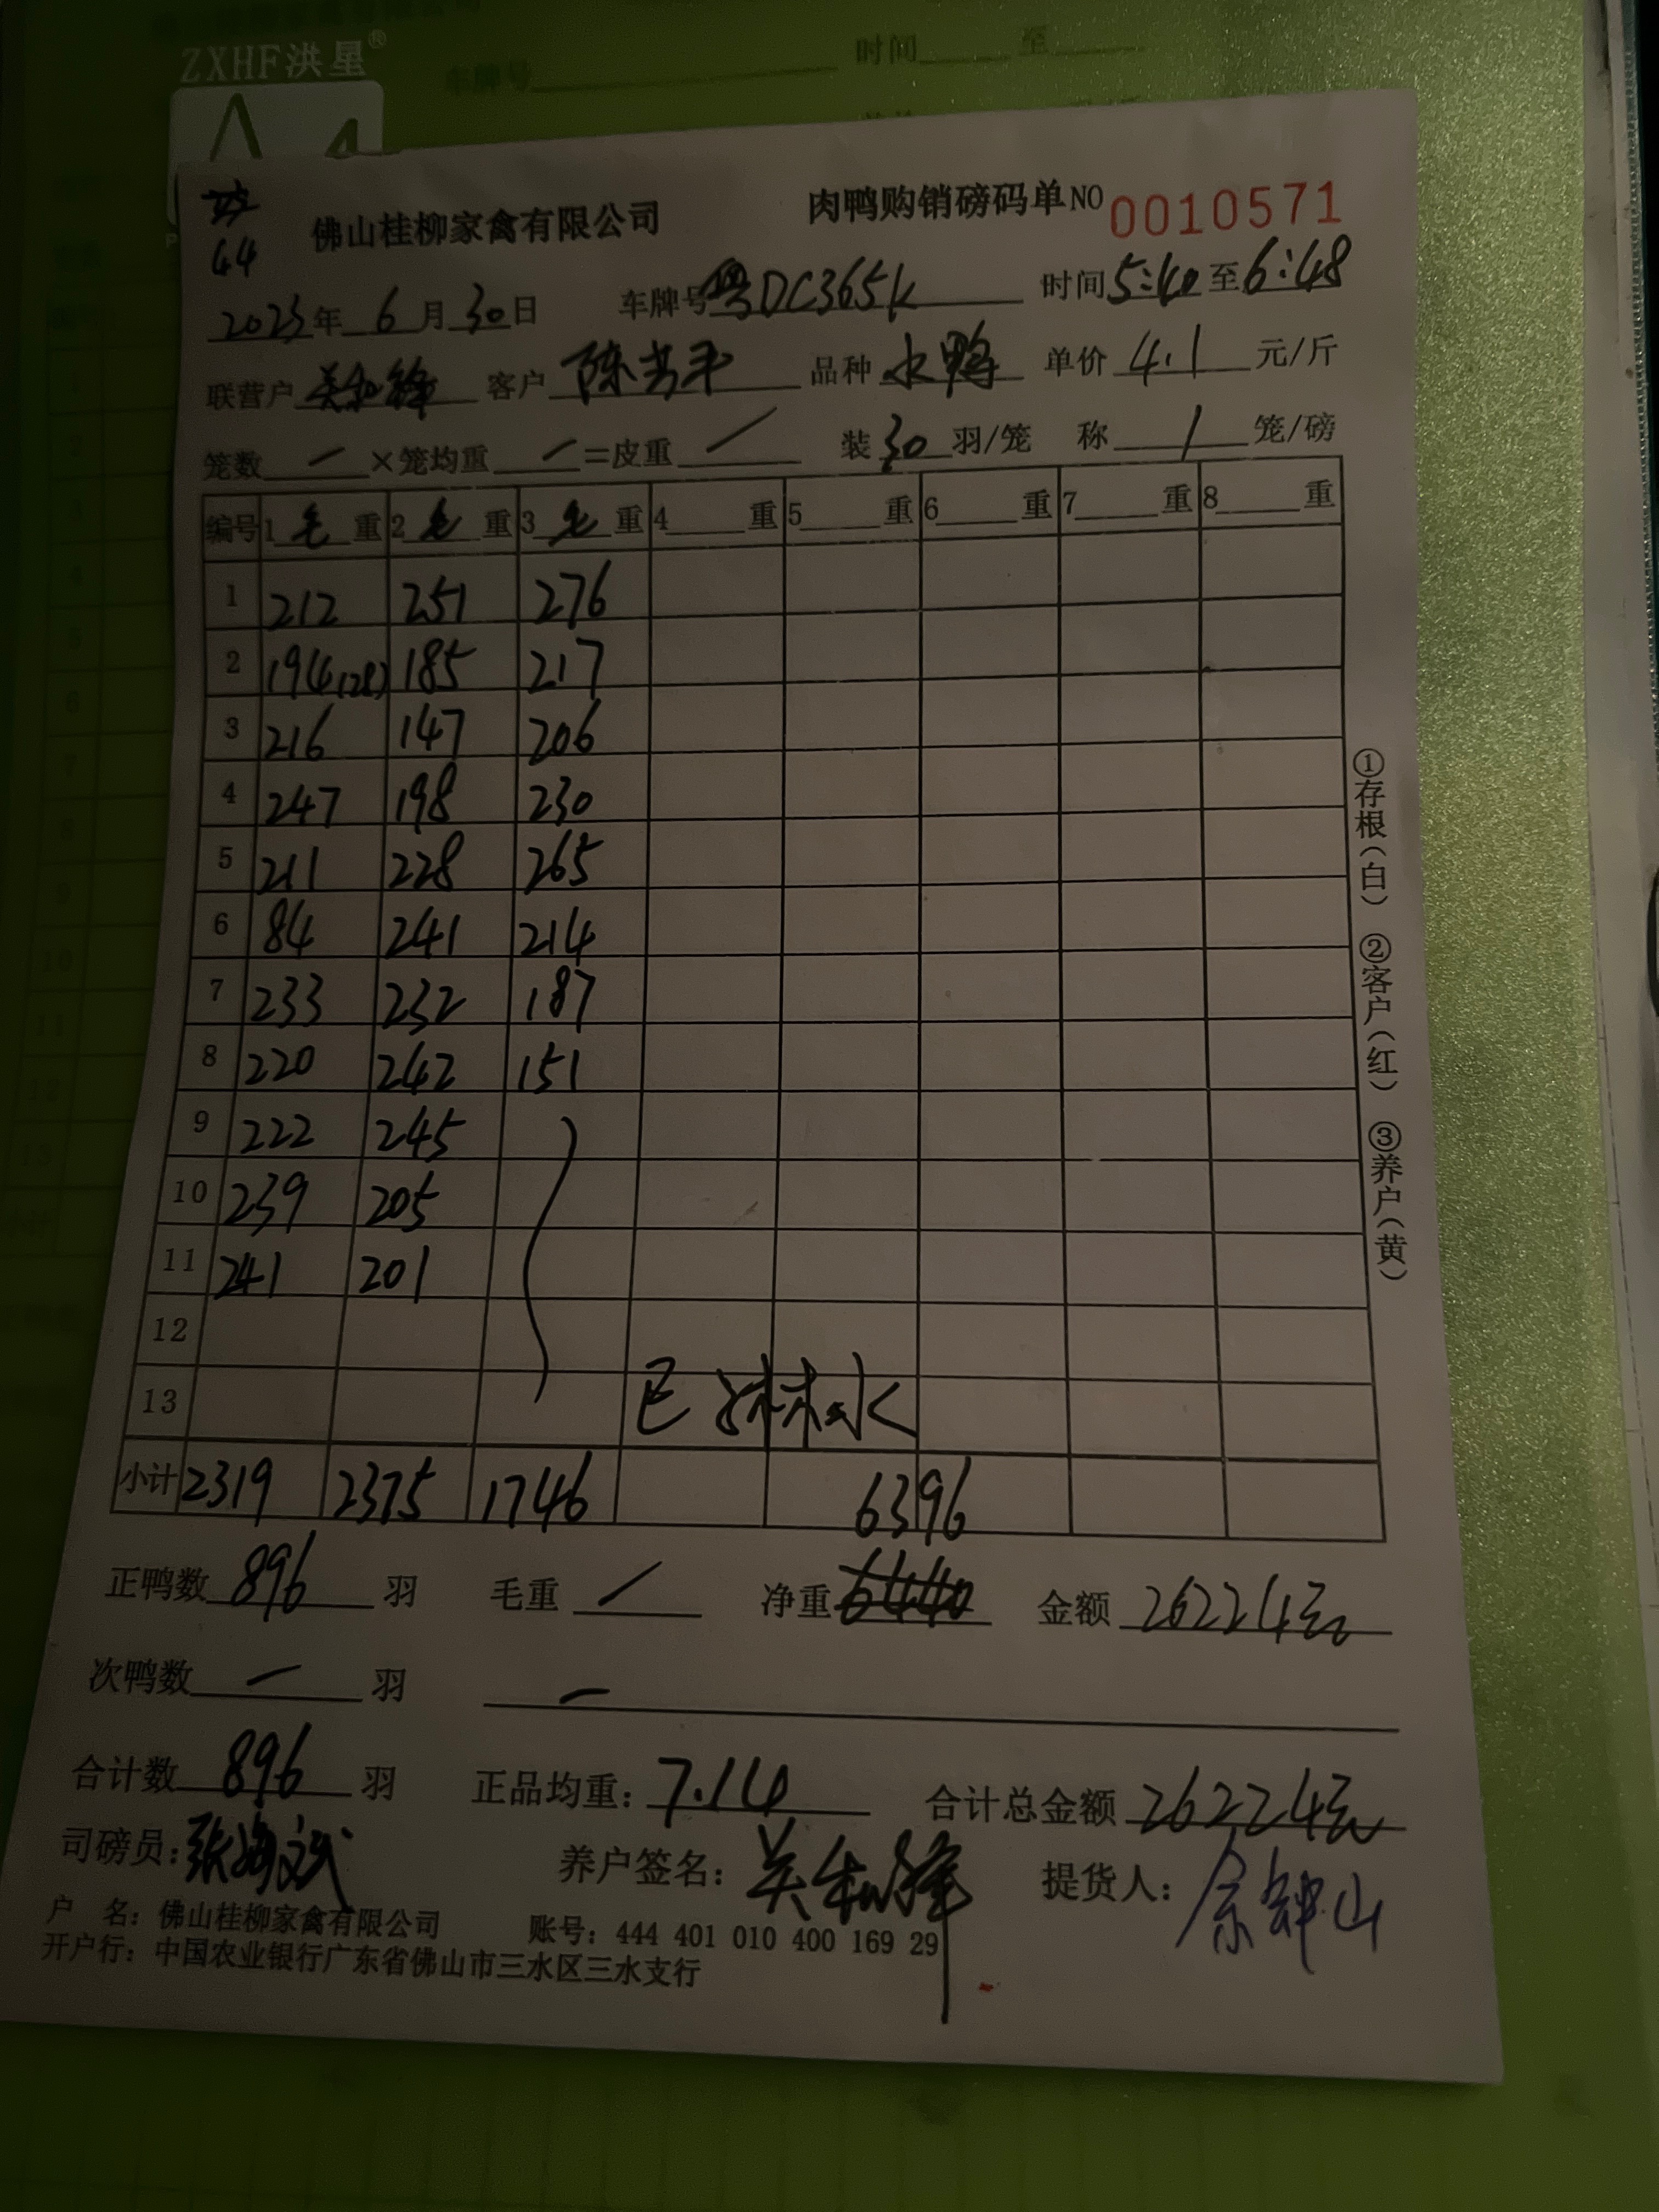 ZXHF洪星®
车牌号 时间 至
A4
44
佛山桂柳家禽有限公司 肉鸭购销磅码单NO 0010571
2023年 6 月 30 日 车牌号 粤DC365K 时间 5:40 至 6:48
联营户 客户 品种 水鸭 单价 4.1 元/斤
笼数 一 ×笼均重 一 =皮重 / 装 30 羽/笼 称 1 笼/磅
编号 1 毛 重 2 毛 重 3 毛 重 4 重 5 重 6 重 7 重 8 重
1 212 251 276
2 194(28) 185 217
3 216 147 206
4 247 198 230
5 211 228 265
6 84 241 214
7 233 232 187
8 220 242 151
9 222 245
10 239 205
11 241 201
12
13 水
小计 2319 2375 1746 6396
正鸭数 896 羽 毛重 / 净重 6440 金额 26224元
次鸭数 一 羽 一
合计数 896 羽 正品均重: 7.14 合计总金额 26224元
司磅员: 养户签名: 提货人:
户 名: 佛山桂柳家禽有限公司 账号: 444 401 010 400 169 29
开户行: 中国农业银行广东省佛山市三水区三水支行
①存根(白) ②客户(红) ③养户(黄)